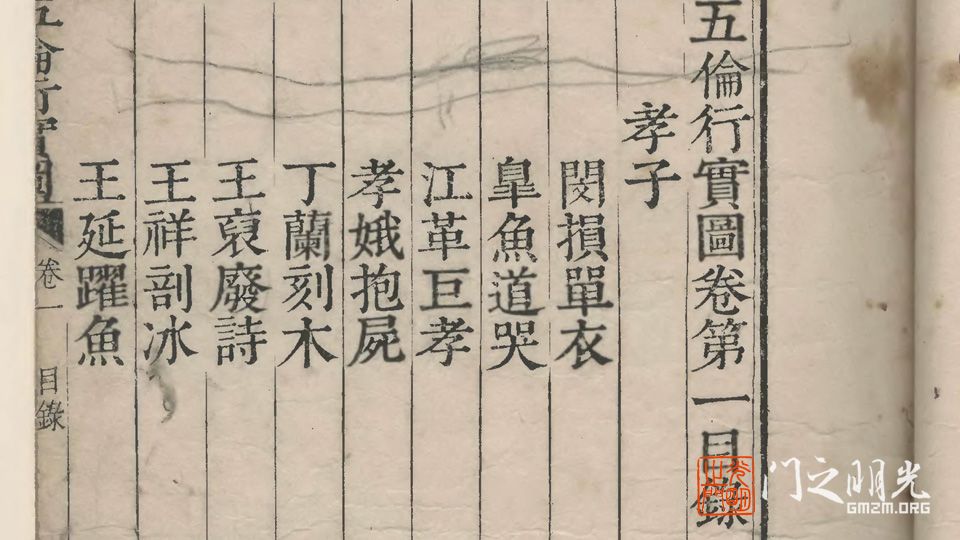 五倫行實圖卷第一目錄
孝子
閔損單衣
臯魚道哭
江革巨孝
孝娥抱屍
丁蘭刻木
王裒廢詩
王祥剖冰
王延躍魚
五倫行實圖 卷一 目錄
门之明光
GMZM.ORG